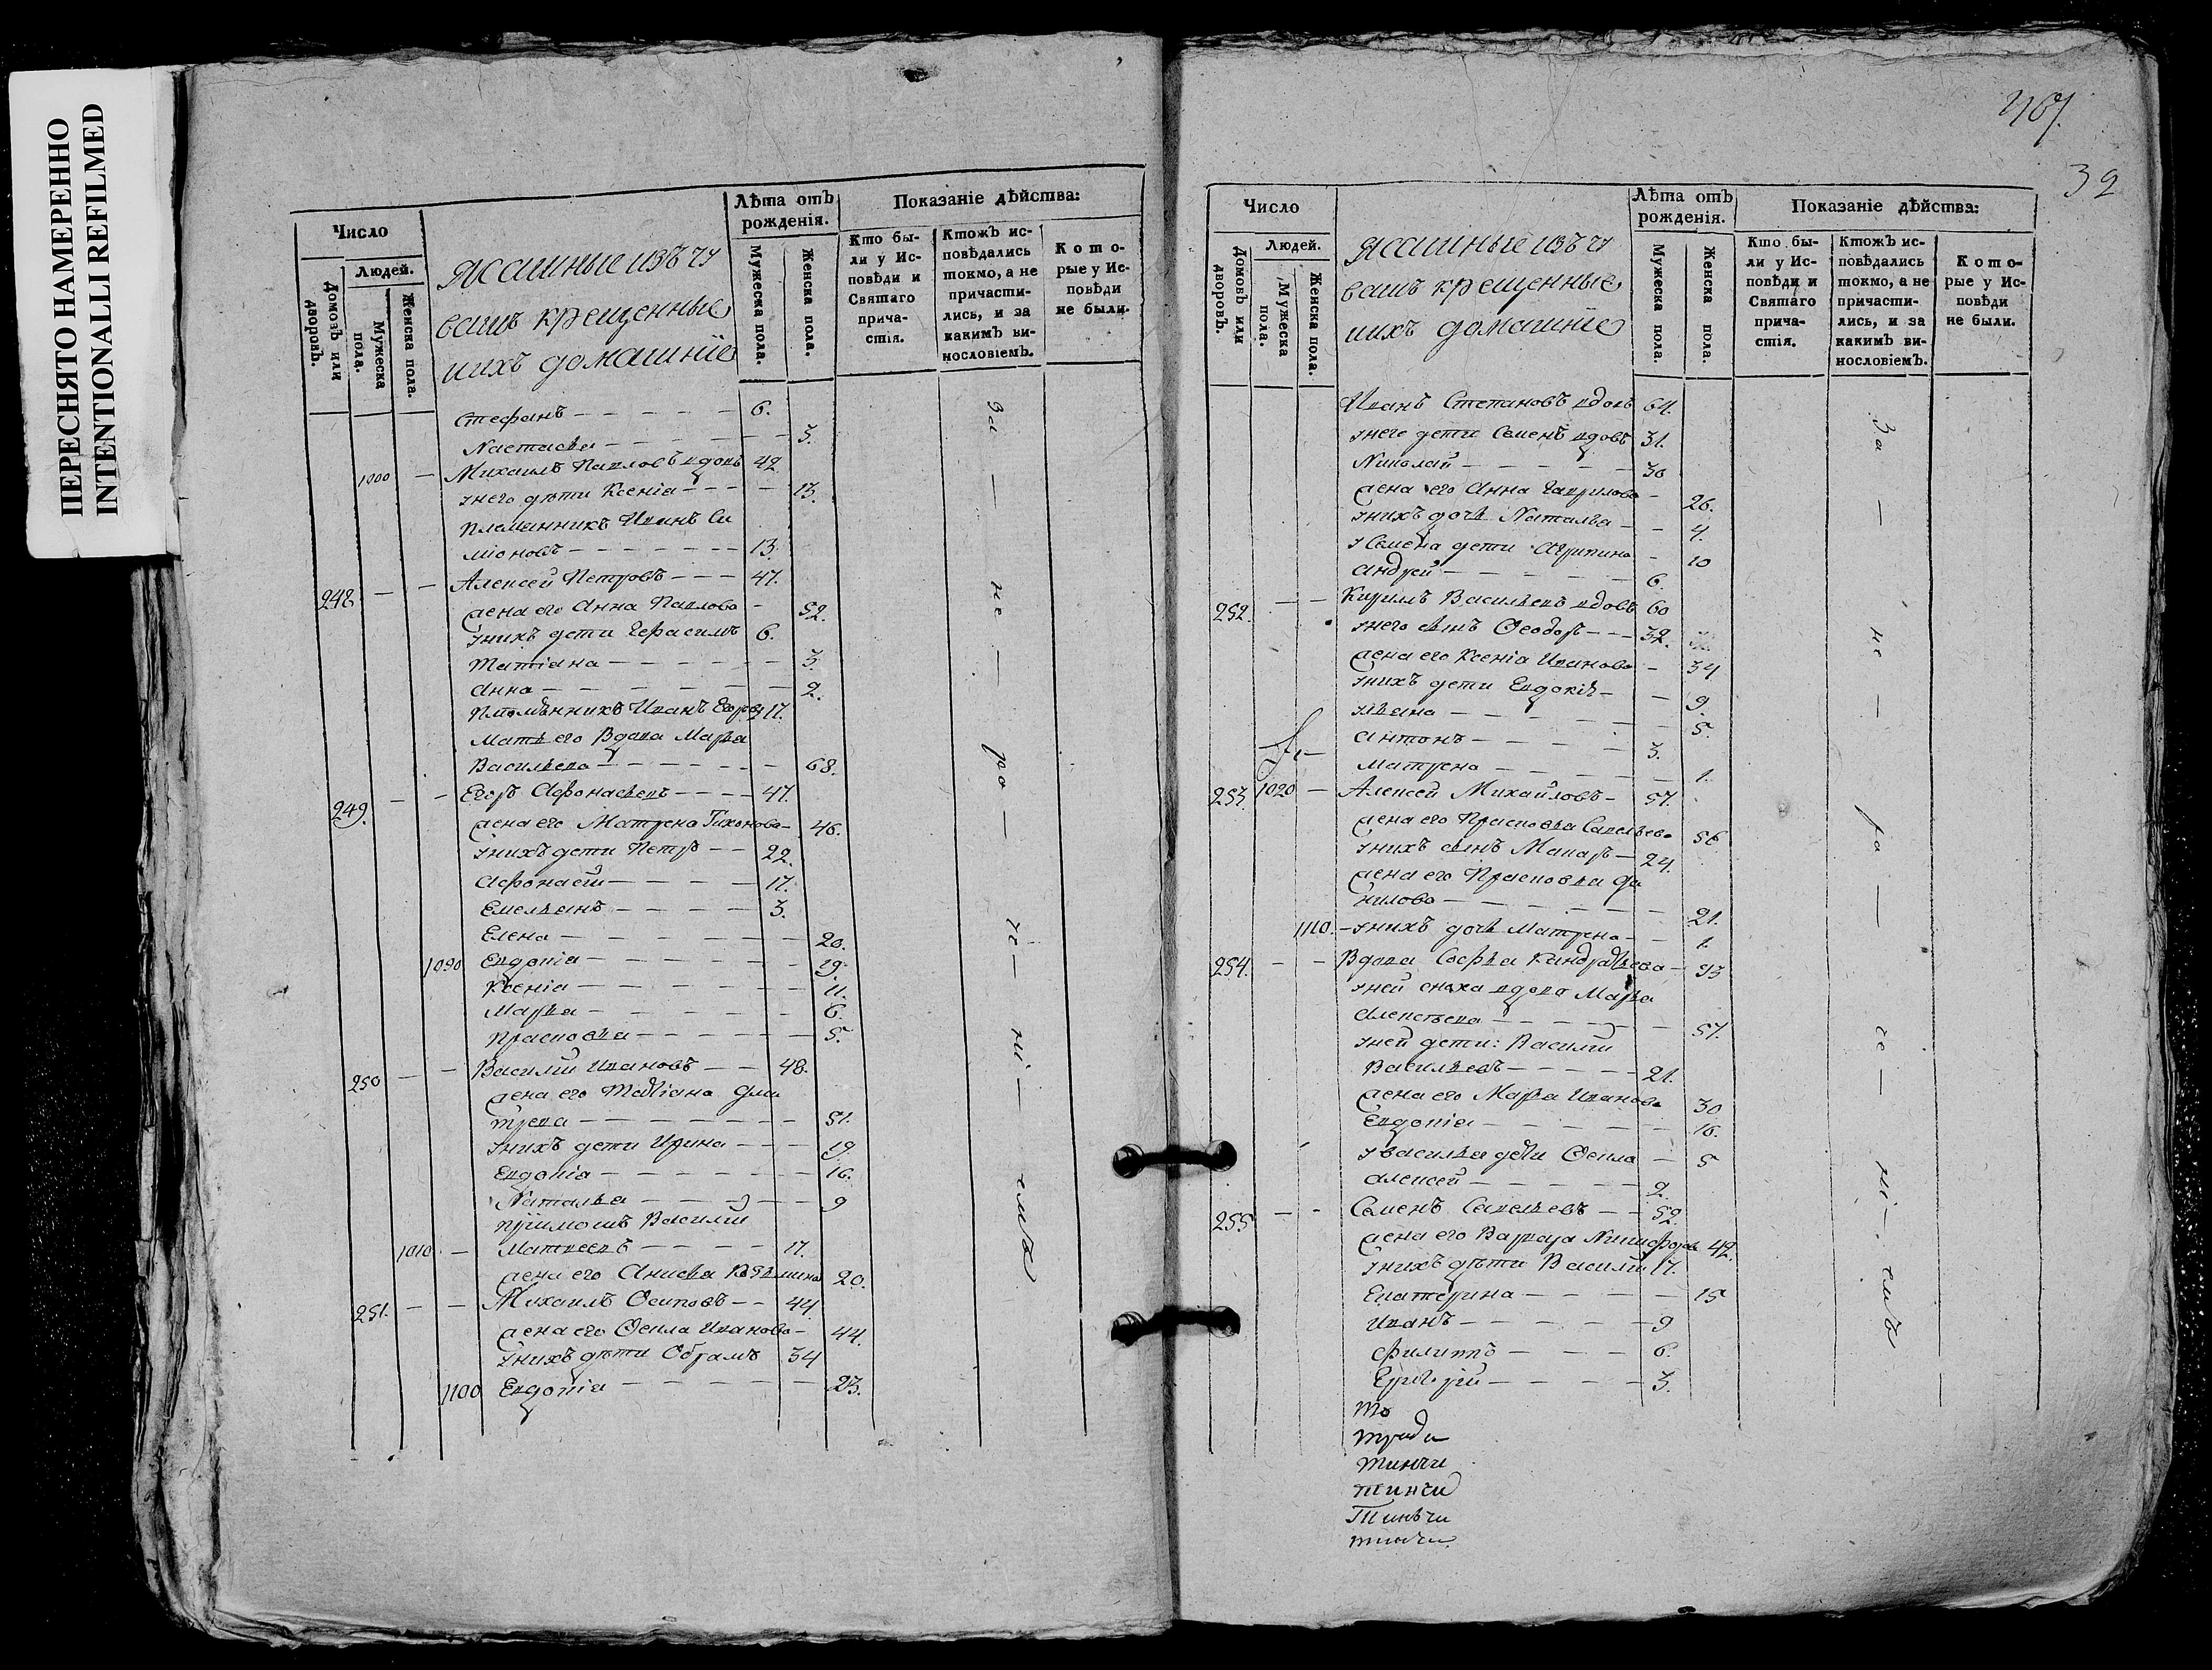 ПЕРЕСНЯТО НАМЕРЕННО
INTENTIONALLI REFILMED
Число
Людей.
Домовъ или дворовъ.
Мужеска пола.
Женска пола.
Ясашные изъ чу
вашъ крещенные
ихъ домашніе
Лѣта отъ рожденія.
Мужеска пола.
Женска пола.
Показаніе дѣйства:
Кто бы-
ли у Ис-
повѣди и
Святаго
прича-
стія.
Ктожъ ис-
повѣдались
токмо, а не
причасти-
лись, и за
какимъ ви-
нословіемъ.
Кото-
рые у Ис-
повѣди
не были.
Стефанъ 6.
Настасья 3.
Михаилъ Павловъ вдовъ 42
унего дѣти Ксенія 13.
племянникъ Иванъ Си
міоновъ 13.
248 Алексей Петровъ 47.
жена его Анна Павлова 52.
унихъ дети Герасимъ 6.
Татіана 3.
Анна 2.
Иванъ Егоровъ 17.
Мать его Вдова Марья
Васильева 68.
249. Егоръ Афонасьевъ 47.
жена его Матрена Тихонова 46.
унихъ дети Петръ 22.
Афонасій 17.
Емельянъ 3.
Елена 20.
1090 Евдокіа 19.
Ксеніа 11.
Марья 6.
Прасковья 5.
250 Василій Ивановъ 48.
жена его Татіана Дми
трева 51.
унихъ дети Ирина 19.
Евдокіа 16.
Наталья 9
пріимошъ Василій
1010 Матвеевъ 17.
жена его Анисья 20.
251. Михаилъ Осиповъ 44.
жена его Фекла Иванова 44.
унихъ дѣти Обрамъ 34
1100 Евдокіа 23.
за не ра че ні емъ
467.
39
Число
Людей.
Домовъ или дворовъ.
Мужеска пола.
Женска пола.
Ясашные изъ чу
вашъ крещенные
ихъ домашніе
Лѣта отъ рожденія.
Мужеска пола.
Женска пола.
Показаніе дѣйства:
Кто бы-
ли у Ис-
повѣди и
Святаго
прича-
стія.
Ктожъ ис-
повѣдались
токмо, а не
причасти-
лись, и за
какимъ ви-
нословіемъ.
Кото-
рые у Ис-
повѣди
не были.
Иванъ Степановъ вдовъ 64.
унего дети Семенъ вдовъ 31.
Николай 30
жена его Анна Гаврилова 26.
унихъ дочь Наталья 4.
у Семена дети Агрипина 10
Андрей 6.
252. Кирилъ Васильевъ вдовъ 60
унего сынъ Ѳеодоръ 32.
жена его Ксеніа Иванова 34
унихъ дети Евдокія 9
Ульяна 5.
Антонъ 3.
Матрена 1.
253. 1020 Алексей Михайловъ 57.
жена его Прасковья Савельева 56
унихъ сынъ Макаръ 24.
жена его Прасковья Да
нилова 21.
1110. унихъ дочь Матрена 1.
254. Вдова Софья Кандратьева 93
уней сноха вдова Марья
Алексеева 57.
уней дети: Василій
Васильевъ 21.
жена его Марья Иванова 30
Евдокіа 16.
у Василья дети Фекла 5
Алексей 2.
255 Семенъ Савельевъ 52.
жена его Варвара Никифорова 42.
унихъ дѣти Василій 17.
Екатерина 15
Иванъ 9
Филиппъ 6.
Григорій 3.
за не ра че ні емъ